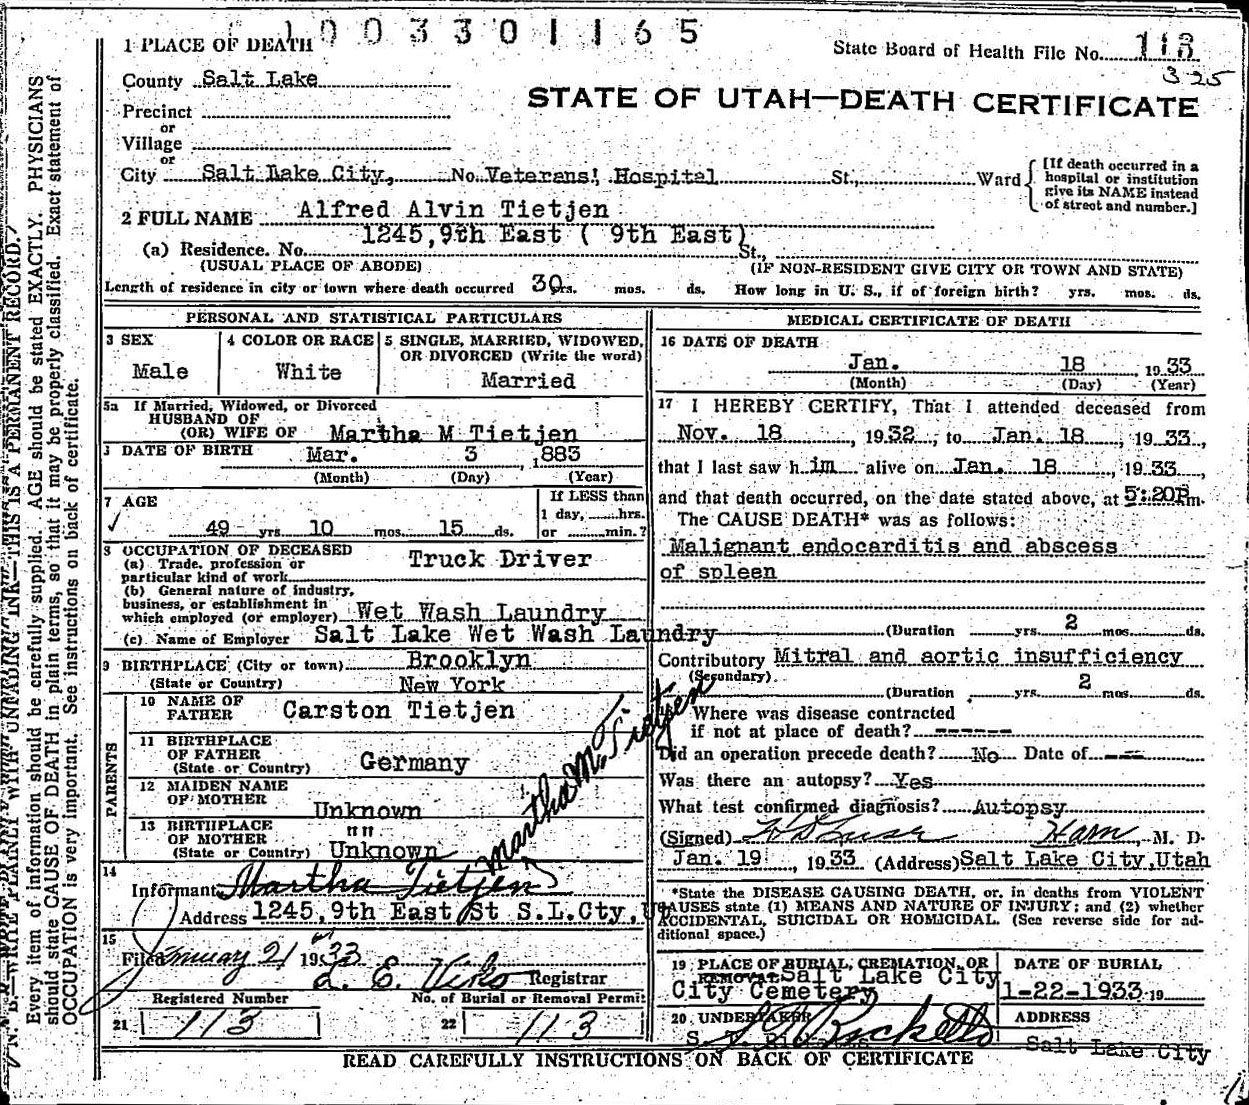 1003301165
State Board of Health File No. 113
325
1 PLACE OF DEATH
County Salt Lake
STATE OF UTAH—DEATH CERTIFICATE
Precinct
or
Village
or
City Salt Lake City, No. Veterans' Hospital St., Ward
[If death occurred in a hospital or institution give its NAME instead of street and number.]
2 FULL NAME Alfred Alvin Tietjen
(a) Residence. No. 1245, 9th East ( 9th East) St.,
(USUAL PLACE OF ABODE) (IF NON-RESIDENT GIVE CITY OR TOWN AND STATE)
Length of residence in city or town where death occurred 30 yrs. mos. ds. How long in U. S., if of foreign birth? yrs. mos. ds.
PERSONAL AND STATISTICAL PARTICULARS
3 SEX
Male
4 COLOR OR RACE
White
5 SINGLE, MARRIED, WIDOWED, OR DIVORCED (Write the word)
Married
5a If Married, Widowed, or Divorced
HUSBAND OF
(OR) WIFE OF Martha M Tietjen
DATE OF BIRTH Mar. 3, 1883
(Month) (Day) (Year)
7 AGE
49 yrs 10 mos. 15 ds.
If LESS than
1 day, hrs.
or min.?
8 OCCUPATION OF DECEASED
(a) Trade, profession or
particular kind of work Truck Driver
(b) General nature of industry,
business, or establishment in
which employed (or employer) Wet Wash Laundry
(c) Name of Employer Salt Lake Wet Wash Laundry
9 BIRTHPLACE (City or town) Brooklyn
(State or Country) New York
PARENTS
10 NAME OF
FATHER Carston Tietjen
11 BIRTHPLACE
OF FATHER
(State or Country) Germany
12 MAIDEN NAME
OF MOTHER Unknown
13 BIRTHPLACE
OF MOTHER " "
(State or Country) Unknown
Martha M. Tietjen
14
Informant Martha Tietjen
Address 1245, 9th East St S.L.Cty, Ut
15
Filed January 21 1933
Registrar
Registered Number
21 113
No. of Burial or Removal Permit
22 113
MEDICAL CERTIFICATE OF DEATH
16 DATE OF DEATH
Jan. 18 1933
(Month) (Day) (Year)
17 I HEREBY CERTIFY, That I attended deceased from
Nov. 18, 1932, to Jan. 18, 1933,
that I last saw him alive on Jan. 18, 1933,
and that death occurred, on the date stated above, at 5:20P m.
The CAUSE DEATH* was as follows:
Malignant endocarditis and abscess
of spleen
(Duration yrs. 2 mos. ds.
Contributory Mitral and aortic insufficiency
(Secondary)
(Duration yrs. 2 mos. ds.
Where was disease contracted
if not at place of death? ------
Did an operation precede death? No Date of ---
Was there an autopsy? Yes
What test confirmed diagnosis? Autopsy
(Signed) M. D.
Jan. 19, 1933 (Address) Salt Lake City, Utah
*State the DISEASE CAUSING DEATH, or, in deaths from VIOLENT
CAUSES state (1) MEANS AND NATURE OF INJURY; and (2) whether
ACCIDENTAL, SUICIDAL OR HOMICIDAL. (See reverse side for ad-
ditional space.)
19 PLACE OF BURIAL, CREMATION, OR
REMOVAL Salt Lake City
City Cemetery
DATE OF BURIAL
1-22-1933 19
20 UNDERTAKER
ADDRESS
Salt Lake City
READ CAREFULLY INSTRUCTIONS ON BACK OF CERTIFICATE
N. B.—WRITE PLAINLY WITH UNFADING INK—THIS IS A PERMANENT RECORD.
Every item of information should be carefully supplied. AGE should be stated EXACTLY. PHYSICIANS
should state CAUSE OF DEATH in plain terms, so that it may be properly classified. Exact statement of
OCCUPATION is very important. See instructions on back of certificate.